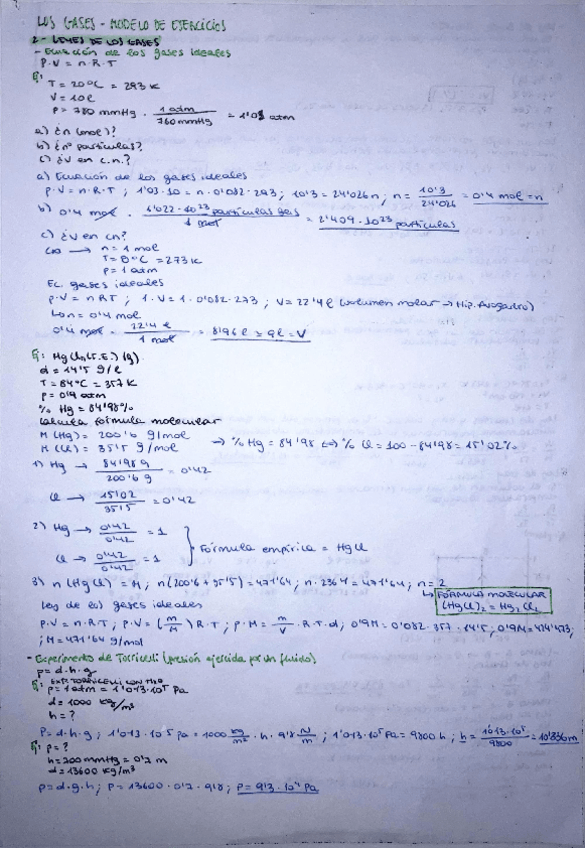 LOS GASES - MODELO DE EJERCICIOS
2- LEYES DE LOS GASES
- Ecuación de los gases ideales
P·V = n·R·T
Ej:
T = 20ºC = 293 K
V = 10 l
P = 780 mmHg · 1 atm / 760 mmHg = 1'03 atm
a) ¿n (mol)?
b) ¿nº partículas?
c) ¿V en c.n.?
a) Ecuación de los gases ideales
P·V = n·R·T ; 1'03·10 = n·0'082·293 ; 10'3 = 24'026n ; n = 10'3 / 24'026 = 0'4 mol = n
b) 0'4 mol · 6'022·10^23 partículas / 1 mol = 2'409·10^23 partículas
c) ¿V en cn?
cn → n = 1 mol
T = 0ºC = 273 K
P = 1 atm
Ec. gases ideales
P·V = nRT ; 1·V = 1·0'082·273 ; V = 22'4 l (volumen molar → Hip. Avogadro)
Con n = 0'4 mol
0'4 mol · 22'4 l / 1 mol = 8'96 l ≈ 9 l = V
Ej: (g)
d = 14'5 g/l
T = 84ºC = 357 K
P = 0'9 atm
% Hg = 84'98%
Calcula fórmula molecular
M (Hg) = 200'6 g/mol
M (Cl) = 35'5 g/mol → % Hg = 84'98 ↔ % Cl = 100 - 84'98 = 15'02%
1) Hg → 84'98 g / 200'6 g = 0'42
Cl → 15'02 / 35'5 = 0'42
2) Hg → 0'42 / 0'42 = 1
Cl → 0'42 / 0'42 = 1 } Fórmula empírica = HgCl
3) n (HgCl) = M ; n (200'6 + 35'5) = 471'64 ; n·236'1 = 471'64 ; n = 2
↳ FÓRMULA MOLECULAR
(HgCl)2 = Hg2Cl2
Ley de los gases ideales
P·V = n·R·T ; P·V = (m/M) R·T ; P·M = m/V · R·T·d ; 0'9M = 0'082·357·14'5 ; 0'9M = 424'473
; M = 471'64 g/mol
- Experimento de Torricelli (presión ejercida por un fluido)
P = d·h·g
Ej: EXP. TORRICELLI CON H2O
P = 1 atm = 1'013·10^5 Pa
d = 1000 kg/m³
h = ?
P = d·h·g ; 1'013·10^5 Pa = 1000 kg/m³ · h · 9'8 N/m ; 1'013·10^5 Pa = 9800 h ; h = 1'013·10^5 / 9800 = 10'336 m
Ej: P = ?
h = 700 mmHg = 0'7 m
d = 13600 kg/m³
P = d·g·h ; P = 13600·0'7·9'8 ; P = 9'3·10^4 Pa